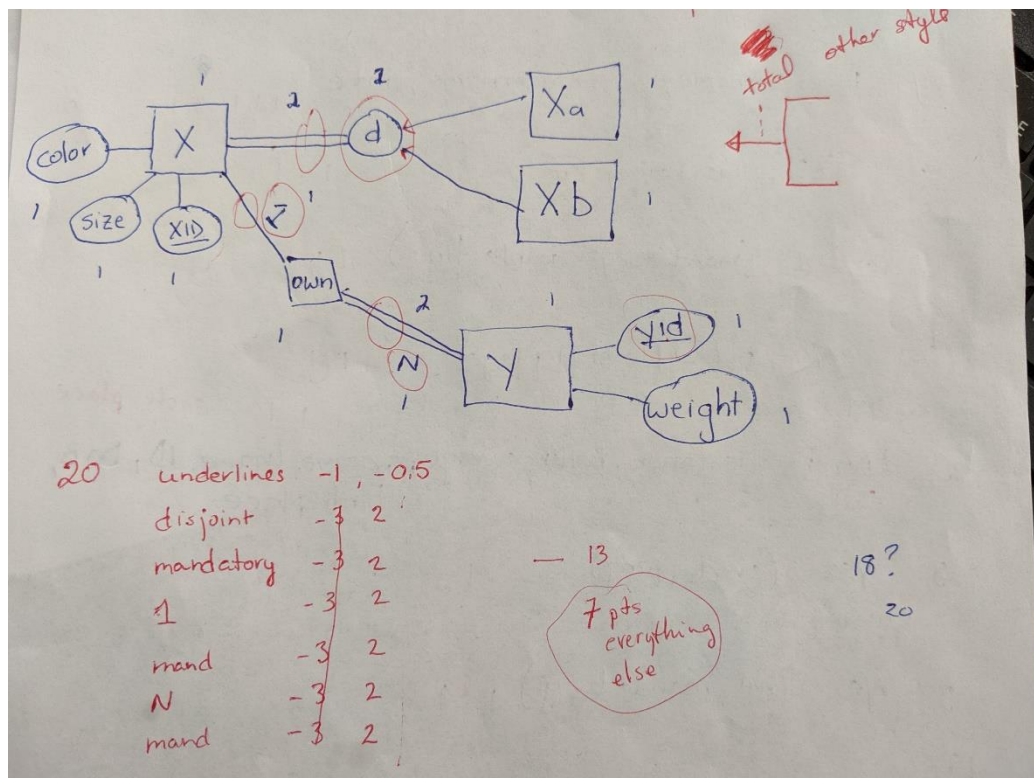 total other style
1
2
1
1
d
Xa
X
color
1
Xb
1
size
XID
1
1
1
1
own
1
2
N
1
1
Y
yid
1
weight
1
20 underlines -1, -0.5
disjoint -3 2
mandatory -3 2
1 -3 2
mand -3 2
N -3 2
mand -3 2
— 13
7 pts
everything
else
18?
20